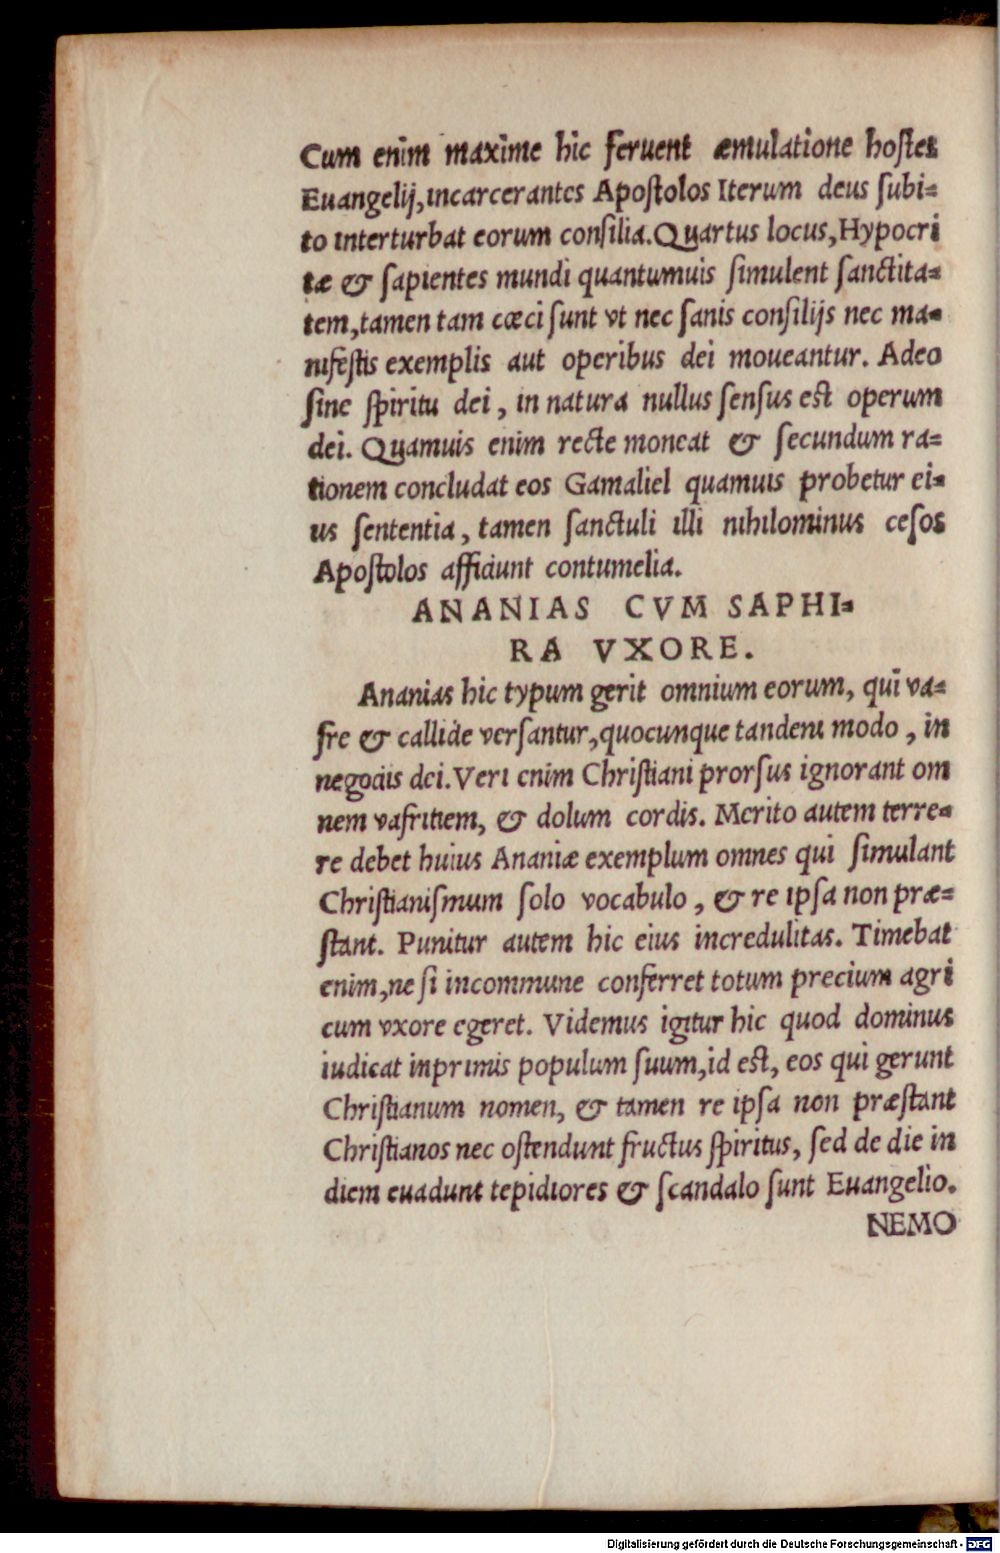 Cum enim maxime hic feruent æmulatione hostes
Euangelij, incarcerantes Apostolos Iterum deus subi=
to interturbat eorum consilia. Quartus locus, Hypocri
tæ & sapientes mundi quantumuis simulent sanctita=
tem, tamen tam cæci sunt vt nec sanis consilijs nec ma=
nifestis exemplis aut operibus dei moueantur. Adeo
sine spiritu dei, in natura nullus sensus est operum
dei. Quamuis enim recte moneat & secundum ra=
tionem concludat eos Gamaliel quamuis probetur ei=
us sententia, tamen sanctuli illi nihilominus cesos
Apostolos afficiunt contumelia.
ANANIAS CVM SAPHI=
RA VXORE.
Ananias hic typum gerit omnium eorum, qui va=
fre & callide versantur, quocunque tandem modo, in
negociis dei. Veri enim Christiani prorsus ignorant om
nem vafritiem, & dolum cordis. Merito autem terre=
re debet huius Ananiæ exemplum omnes qui simulant
Christianismum solo vocabulo, & re ipsa non præ=
stant. Punitur autem hic eius incredulitas. Timebat
enim, ne si incommune conferret totum precium agri
cum vxore egeret. Videmus igitur hic quod dominus
iudicat inprimis populum suum, id est, eos qui gerunt
Christianum nomen, & tamen re ipsa non præstant
Christianos nec ostendunt fructus spiritus, sed de die in
diem euadunt tepidiores & scandalo sunt Euangelio.
NEMO
Digitalisierung gefördert durch die Deutsche Forschungsgemeinschaft - DFG